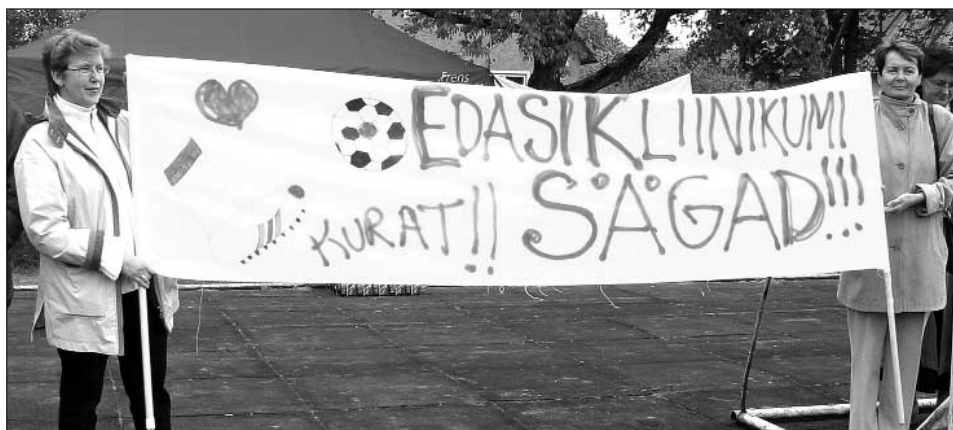 Frens
EDASI KLIINIKUMI
KURAT!! SÄGAD!!!